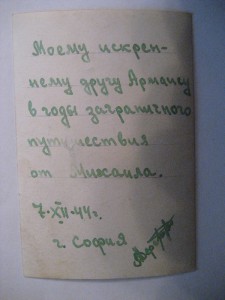 Моему искрен-
нему другу Армансу
в годы заграничного
путишествия
от Михаила.
7-XII-44 г.
г. София